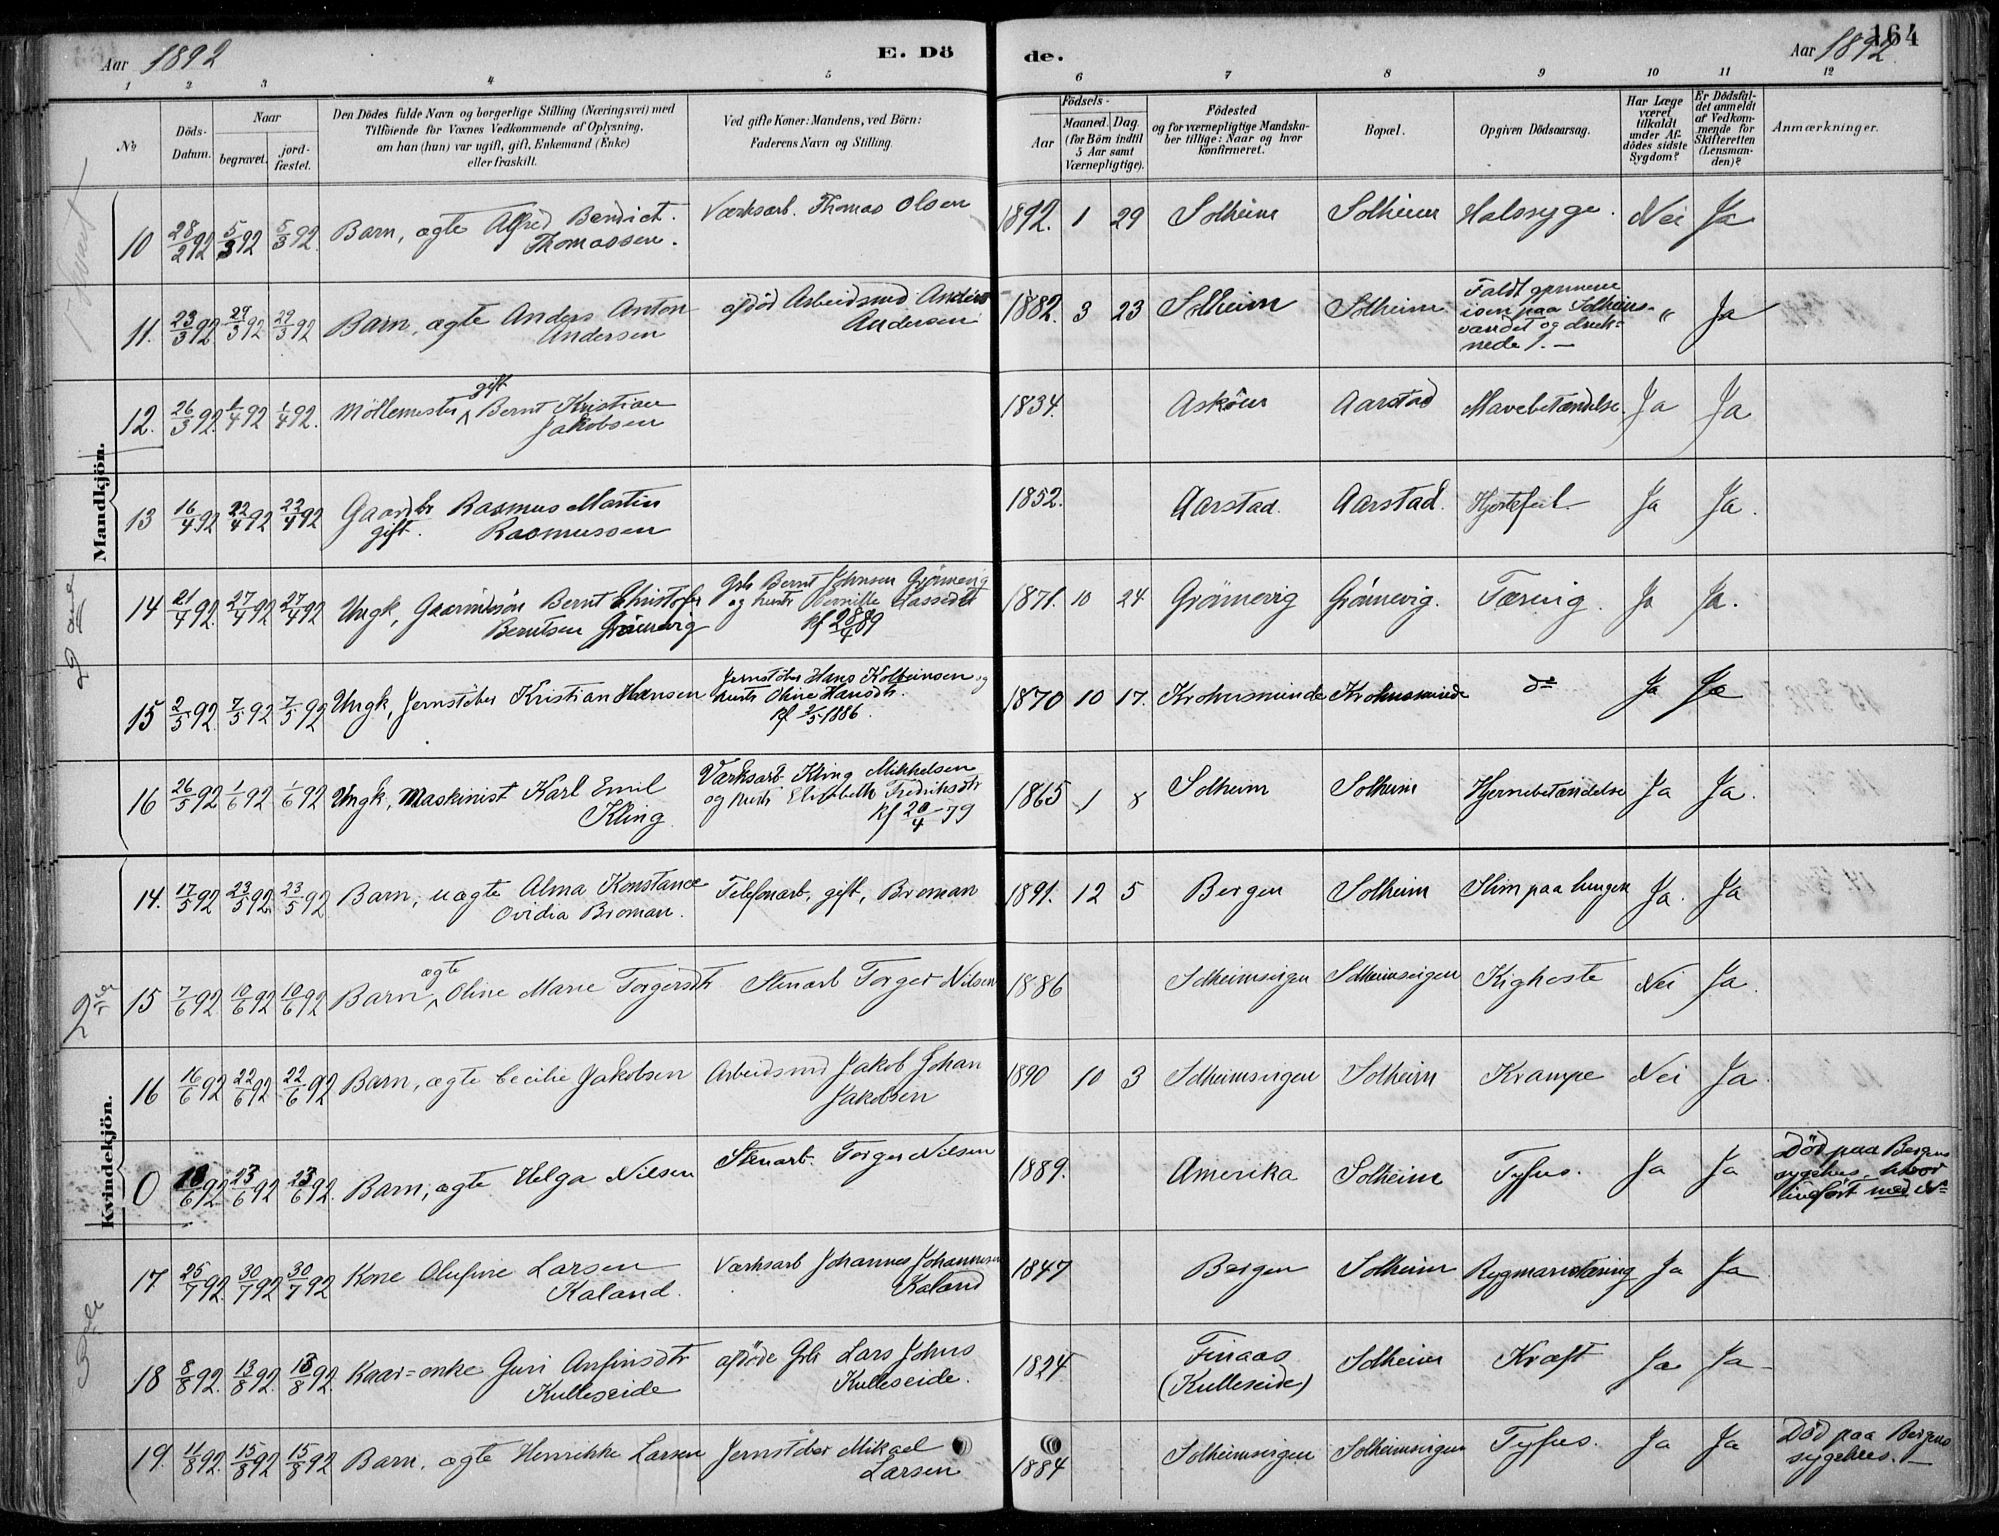 164
Aar 1892
E. Dö
de.
Aar 1892
1 2 3 4 5 6 7 8 9 10 11 12
№
Döds-
Datum.
Naar
begravet.
jord-
fæstet.
Den Dödes fulde Navn og borgerlige Stilling (Næringsvei) med
Tilföiende for Voxnes Vedkommende af Oplysning,
om han (hun) var ugift, gift, Enkemand (Enke)
eller fraskilt.
Ved gifte Koner: Mandens, ved Börn:
Faderens Navn og Stilling.
Födsels-
Aar
Maaned. Dag.
(for Börn indtil
5 Aar samt
Værnepligtige).
Födested
og for værnepligtige Mandska-
ber tillige: Naar og hvor
konfirmeret.
Bopæl.
Opgiven Dödsaarsag.
Har Læge
været
tilkaldt
under Af-
dödes sidste
Sygdom?
Er Dödsfal-
det anmeldt
af Vedkom-
mende for
Skifteretten
(Lensman-
den)?
Anmærkninger.
Mandkjön.
10 28/2 92 5/3 92 5/3 92. Barn, ægte Alfred Bendict. Værksarb. Thomas Olsen 1892. 1 29 Solheim Solheim Halssyge. Nei Ja
Thomassen.
11. 23/3 92 29/3 92 29/3 92 Barn, ægte Anders Anton afdød Arbeidsmd Anders 1882. 3 23 Solheim Solheim Faldt gjennem " Ja
Andersen Andersen isen paa Solheims-
vandet og druk-
nede !. —
12. 26/3 92. 1/4 92 1/4 92. Möllemester gift Bernt Kristian 1834. Asköen Aarstad Mavebetændelse. Ja Ja
Jakobsen
13 16/4 92 22/4 92 22/4 92 Gaardbr Rasmus Martin 1852. Aarstad. Aarstad. Hjertefeil Ja Ja.
gift. Rasmussen
14 21/4 92. 27/4 92 27/4 92 Ungk, Gaardmdsön Bernt Christofer Gbr Bernt Johnsen Grönnevig 1871. 10 24. Grönnevig Grönnevig. Tæring. Ja Ja.
Berntsen Grönnevig og hustr Lassedtr
kf 28/4 89
15 2/5 92. 7/5 92 7/5 92 Ungk, Jernstöber Kristian Hansen Jernstöber Hans Kolbeinsen og 1870 10 17. Krohnsminde Krohnsminde do Ja Ja
hustr Oline Hansdtr.
kf 2/5 1886.
16 26/5 92 1/6 92 1/6 92 Ungk, Maskinist Karl Emil Værksarb Kling Mikkelsen 1865 1 8 Solheim Solheim Hjernebetændelse Ja Ja.
Kling og hustr Elisabeth Fredriksdtr
kf 20/4 - 79
Kvindekjön.
14. 17/5 92 23/5 92. 23/5 92 Barn, uægte Alma Konstance Telefonarb. gift, Broman 1891. 12 5 Bergen Solheim Slim paa lungen Ja. Ja
Ovidia Broman.
15 7/6 92 10/6 92 10/6 92 Barn ægte Oline Marie Torgersdtr Stenarb Torger Nilsen 1886 Solheimsvigen Solheimsvigen Kighoste Nei Ja.
16 16/6 92 22/6 92 22/6 92 Barn, ægte Cecilie Jakobsen Arbeidsmd Jakob Johan 1890 10 3 Solheimsvigen Solheim Krampe Nei Ja
Jakobsen
0 18/6 92. 23/6 92 23/6 92. Barn, ægte Helga Nilsen Stenarb. Torger Nilsen 1889. Amerika Solheim Tyfus. Ja Ja Död paa Bergens
sygehus, hvor
17 25/7 92. 30/7 92 30/7 92 Kone Olufine Larsen Værksarb Johannes Johannesen 1847 Bergen Solheim Rygmarvstæring Ja Ja
Kaland. Kaland
18 8/8 92. 13/8 92. 13/8 92. Kaar-enke Guri Anfinsdtr afdöde Gbr Lars Johns 1824 Finaas Solheim Kræft Ja Ja
Kulleseide Kulleseide. (Kulleseide)
19. 11/8 92. 15/8 92 15/8 92 Barn, ægte Henrikke Larsen Jernstöber Mikael 1884 Solheimsvigen Solheimsvigen Tyfus. Ja Ja Död paa Bergens
Larsen sygehus. —